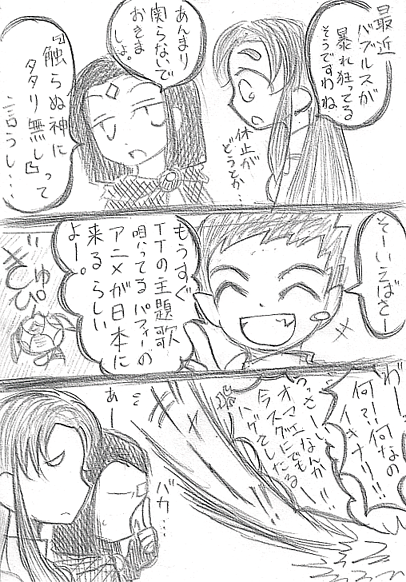 最近
バブルスが
暴れ狂ってる
そうですわね。
休止が
どうとか…
あんまり
関らないで
おきま
しょ。
『触らぬ神に
タタリ無し』って
言うし…
そーいえばさー
もうすぐ
TTの主題歌
唄ってるパフィーの
アニメが日本に
来るらしい
よー。
何?!何なの
イキナリ!!
うっさーい!!
オマエなんか
今スグにでも
ハゲてしまえ
あー
バカ…